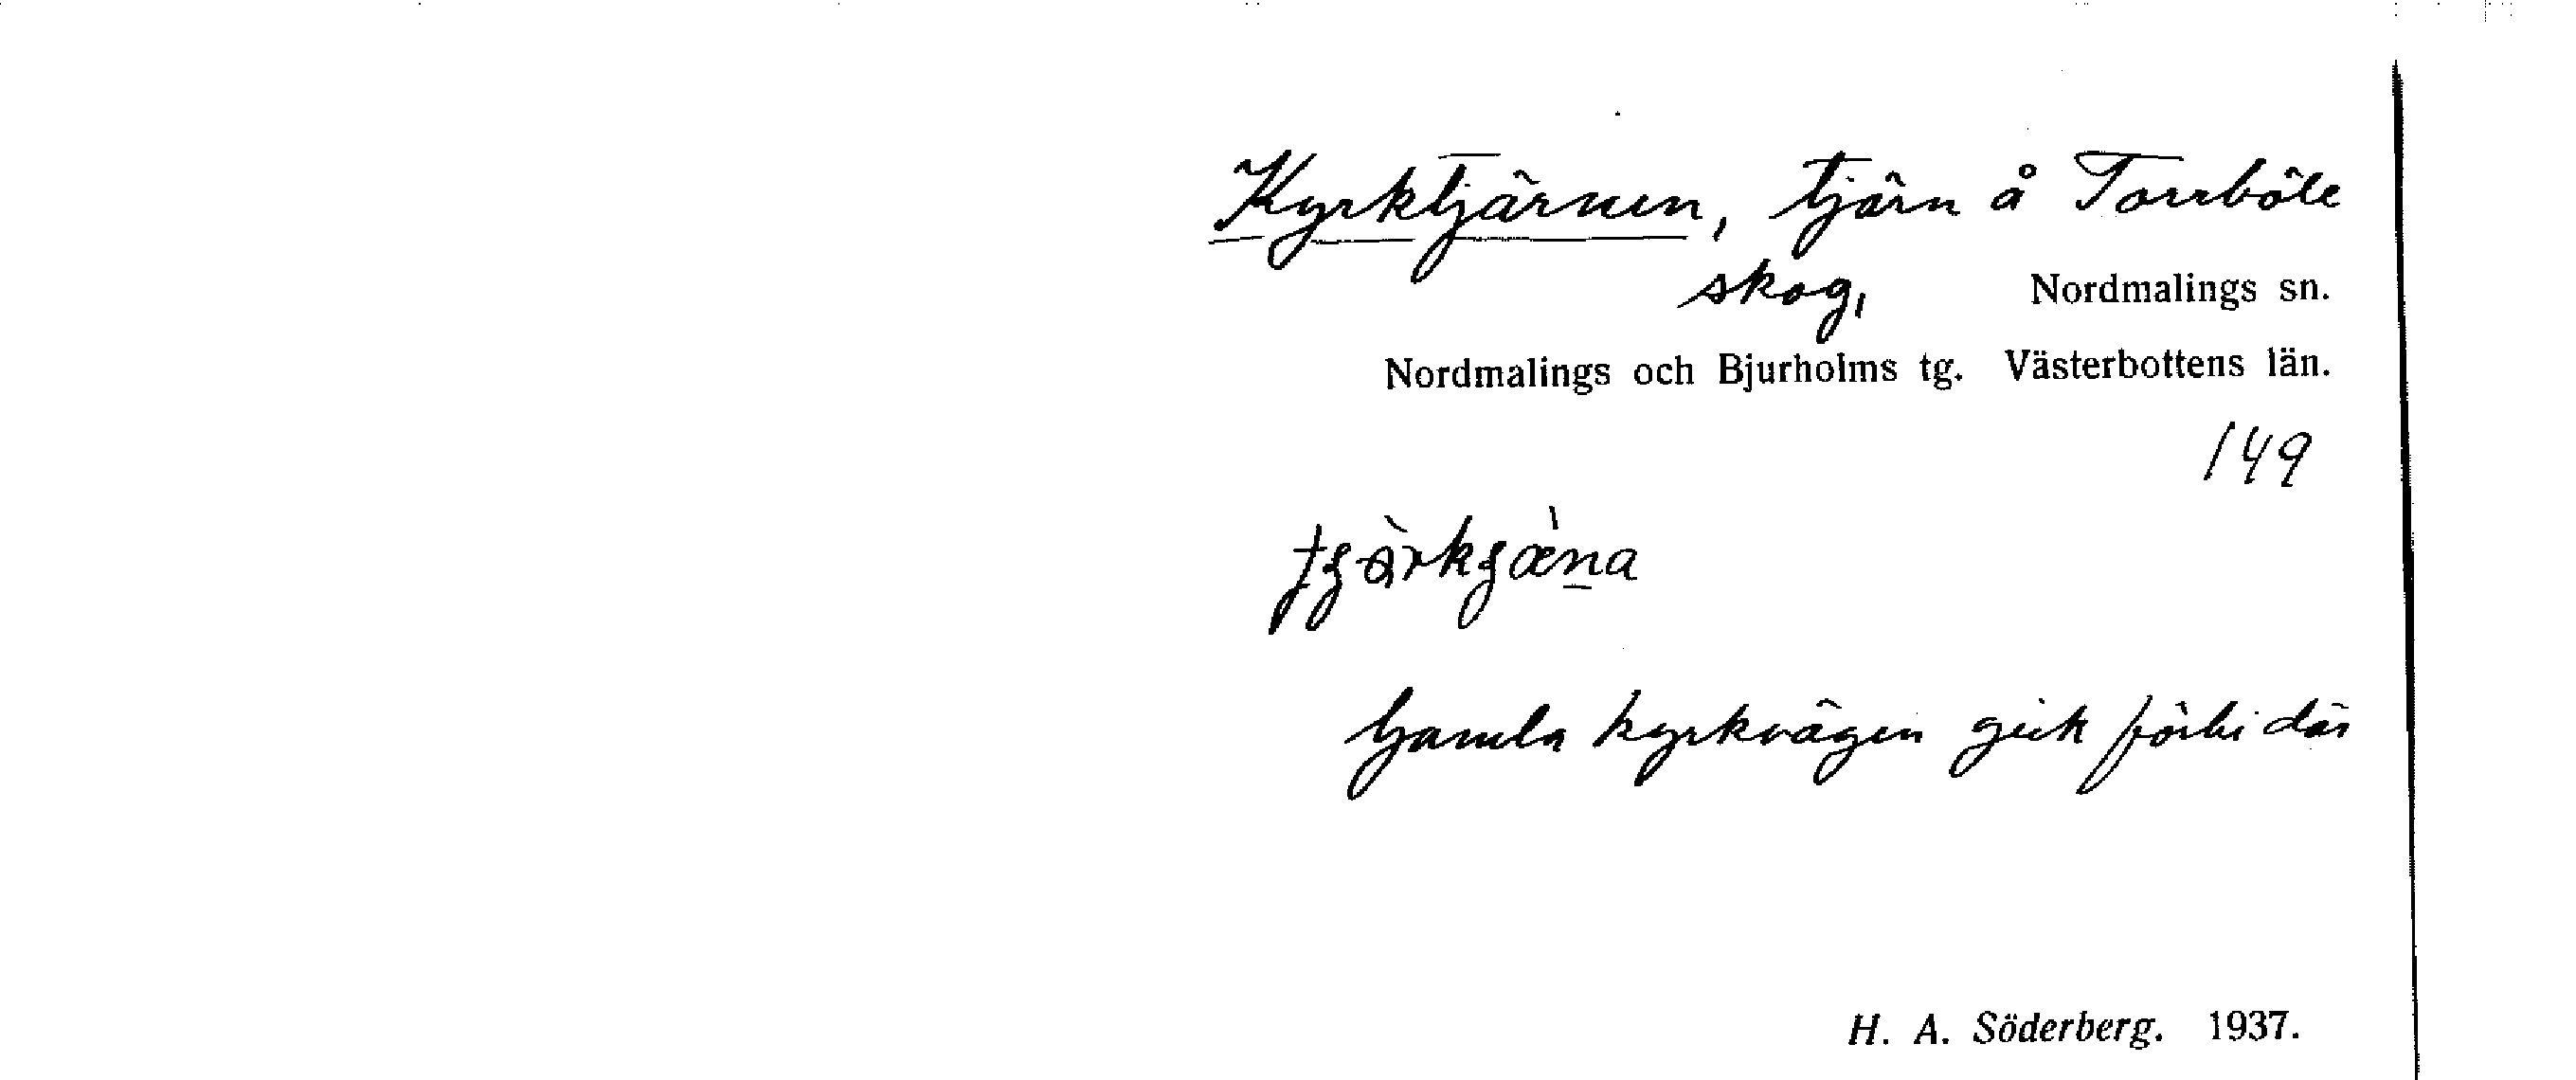 Kyrktjärnen, tjärn å Torrböle
skog, Nordmalings sn.
Nordmalings och Bjurholms tg. Västerbottens län.
149
Gamla kyrkvägen gick förbi där
H. A. Söderberg. 1937.